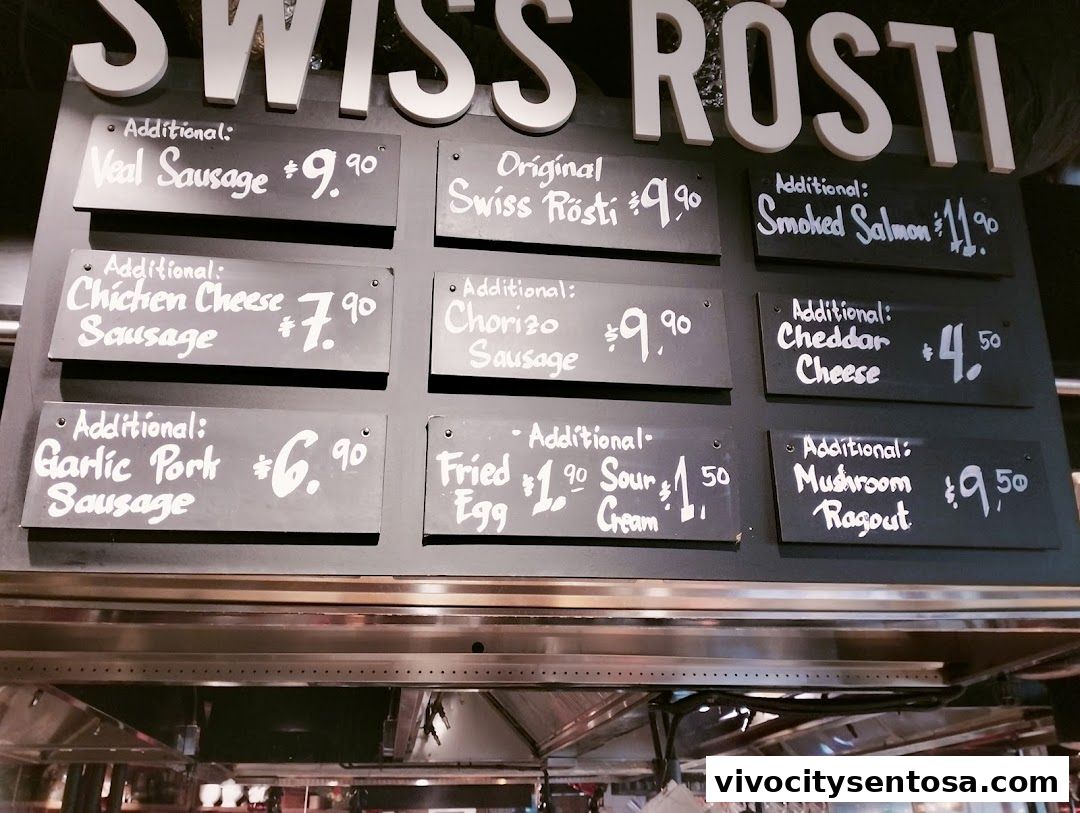 SWISS RÖSTI
Additional:
Veal Sausage $9.90
Original
Swiss Rösti $9.90
Additional:
Smoked Salmon $11.90
Additional:
Chicken Cheese
Sausage $7.90
Additional:
Chorizo
Sausage $9.90
Additional:
Cheddar
Cheese $4.50
Additional:
Garlic Pork
Sausage $6.90
-Additional-
Fried
Egg $1.90
Sour
Cream $1.50
Additional:
Mushroom
Ragout $9.50
vivocitysentosa.com